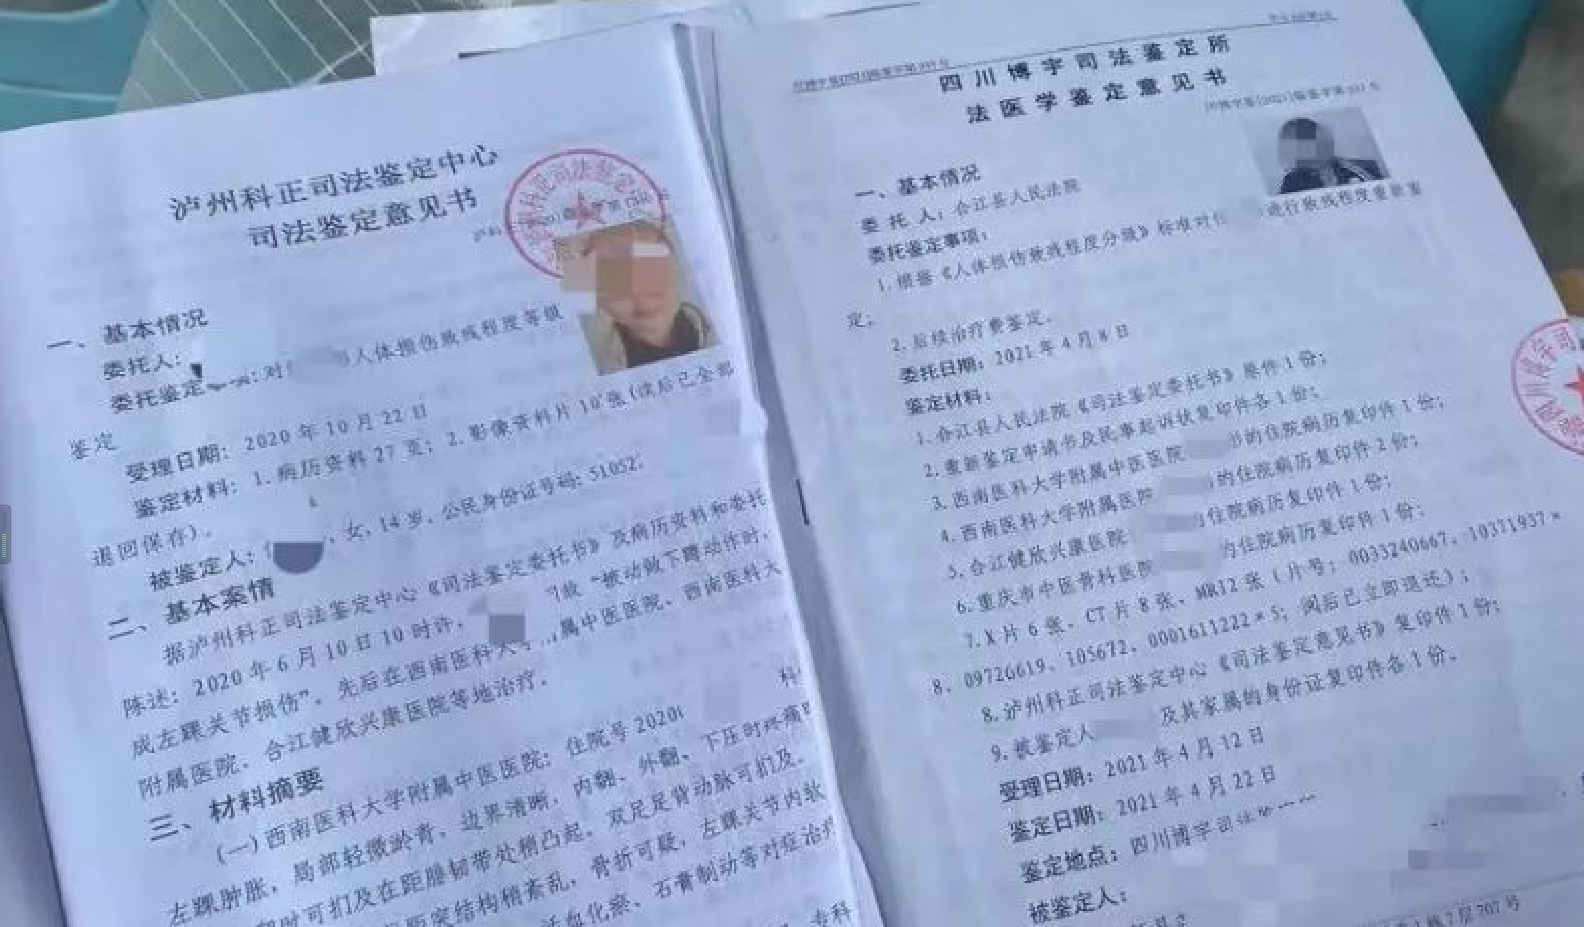 泸州科正司法鉴定中心
司法鉴定意见书
一、基本情况
委托人:
委托鉴定 : 对 人体损伤致残程度等级
鉴定
受理日期: 2020 年 10 月 22 日
鉴定材料: 1. 病历资料 27 页; 2. 影像资料片 10 张(读后已全部
退回保存)。
被鉴定人: 、女, 14 岁, 公民身份证号码: 51052
二、基本案情
据泸州科正司法鉴定中心《司法鉴定委托书》及病历资料和委托
陈述: 2020 年 6 月 10 日 10 时许, 做“被动做下蹲动作时,
成左踝关节损伤”。先后在西南医科大 属中医医院、西南医科大
附属医院、合江健欣兴康医院等地治疗。
三、材料摘要
(一)西南医科大学附属中医医院: 住院号 2020
左踝肿胀, 局部轻微淤青, 边界清晰, 内翻、外翻、下压时疼痛
可扪及在距腓韧带处稍凸起, 双足足背动脉可扪及。
突结构稍紊乱, 骨折可疑, 左踝关节内软
活血化瘀、石膏制动等对症治疗
四川博宇司法鉴定所
法医学鉴定意见书
一、基本情况
委托人: 合江县人民法院
委托鉴定事项:
1. 根据《人体损伤致残程度分级》标准对 进行致残程度重新鉴
定;
2. 后续治疗费鉴定。
委托日期: 2021 年 4 月 8 日
鉴定材料:
1. 合江县人民法院《司法鉴定委托书》原件 1 份;
2. 重新鉴定申请书及民事起诉状复印件各 1 份;
3. 西南医科大学附属中医医院 的住院病历复印件 1 份;
4. 西南医科大学附属医院 的住院病历复印件 2 份;
5. 合江健欣兴康医院 住院病历复印件 1 份;
6. 重庆市中医骨科医院 住院病历复印件 1 份;
7. X 片 6 张、CT 片 8 张、MRI2 张(片号: 0033240667、10371937×
8、09726619、105672、0001611222×5; 阅后已立即退还);
8. 泸州科正司法鉴定中心《司法鉴定意见书》复印件 1 份;
9. 被鉴定人 及其家属的身份证复印件各 1 份。
受理日期: 2021 年 4 月 12 日
鉴定日期: 2021 年 4 月 22 日
鉴定地点: 四川博宇司法
被鉴定人: